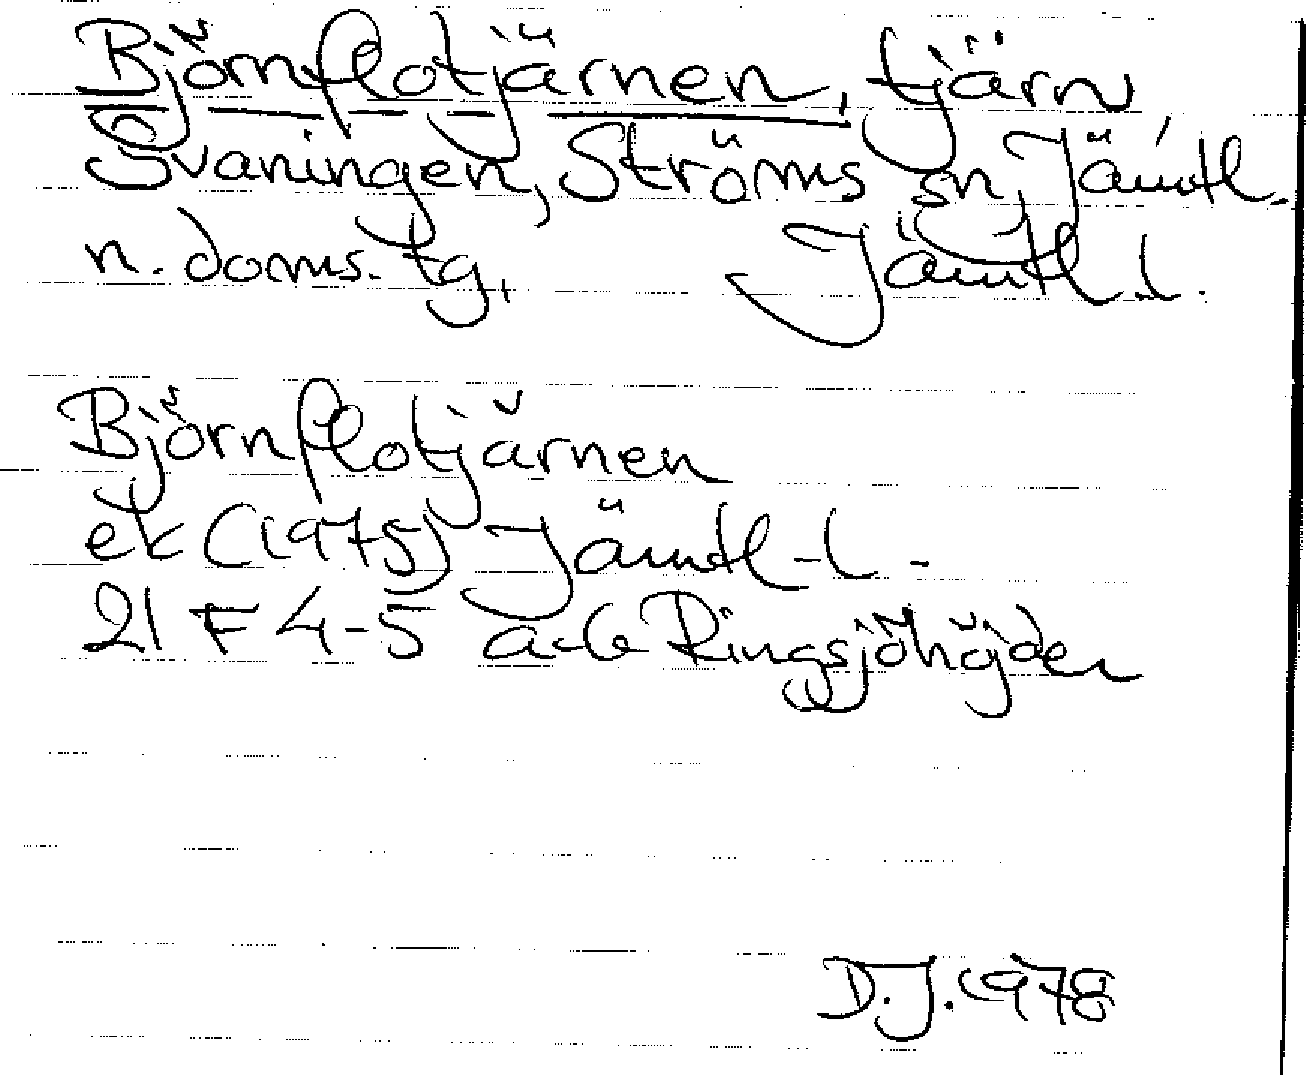 Björnflotjärnen, tjärn
Svaningen, Ströms sn, Jämtl.
n. doms. tg, Jämtl. l.
Björnflotjärnen
ek (1975) Jämtl-l.
21 F 4-5 a-b Ringsjöhöjden
D.J. 1978